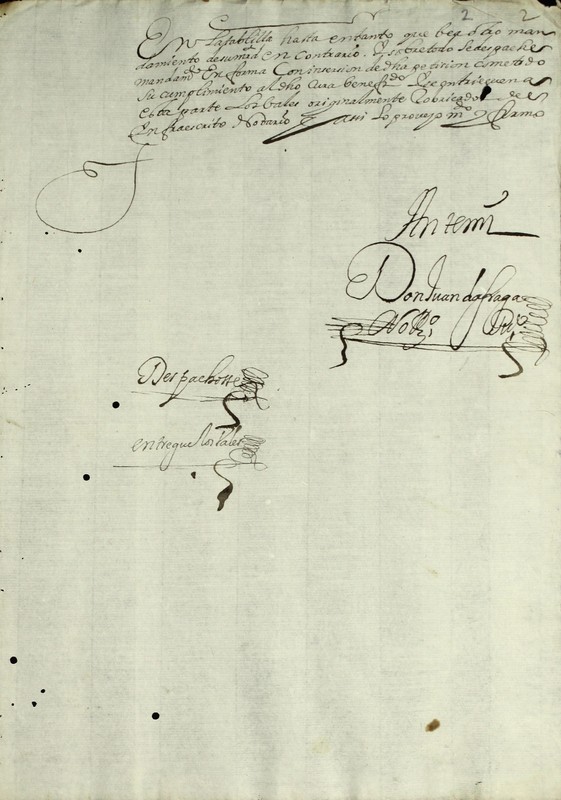 2 2
En la tablilla hasta entanto que bea otro man
damiento de sumrd en Contrario. Y sobre todo se despache
mandamto En forma Con insersion de dha petision cometido
Su cumplimiento al dho Cura benefdo Y se entreguen a
esta parte los bales originalmente
En fraescrito Notario Assi lo proveyo mdo y firmo
Ante mi
Don Juan de fraga
Notro
Despachose
entregue los bales